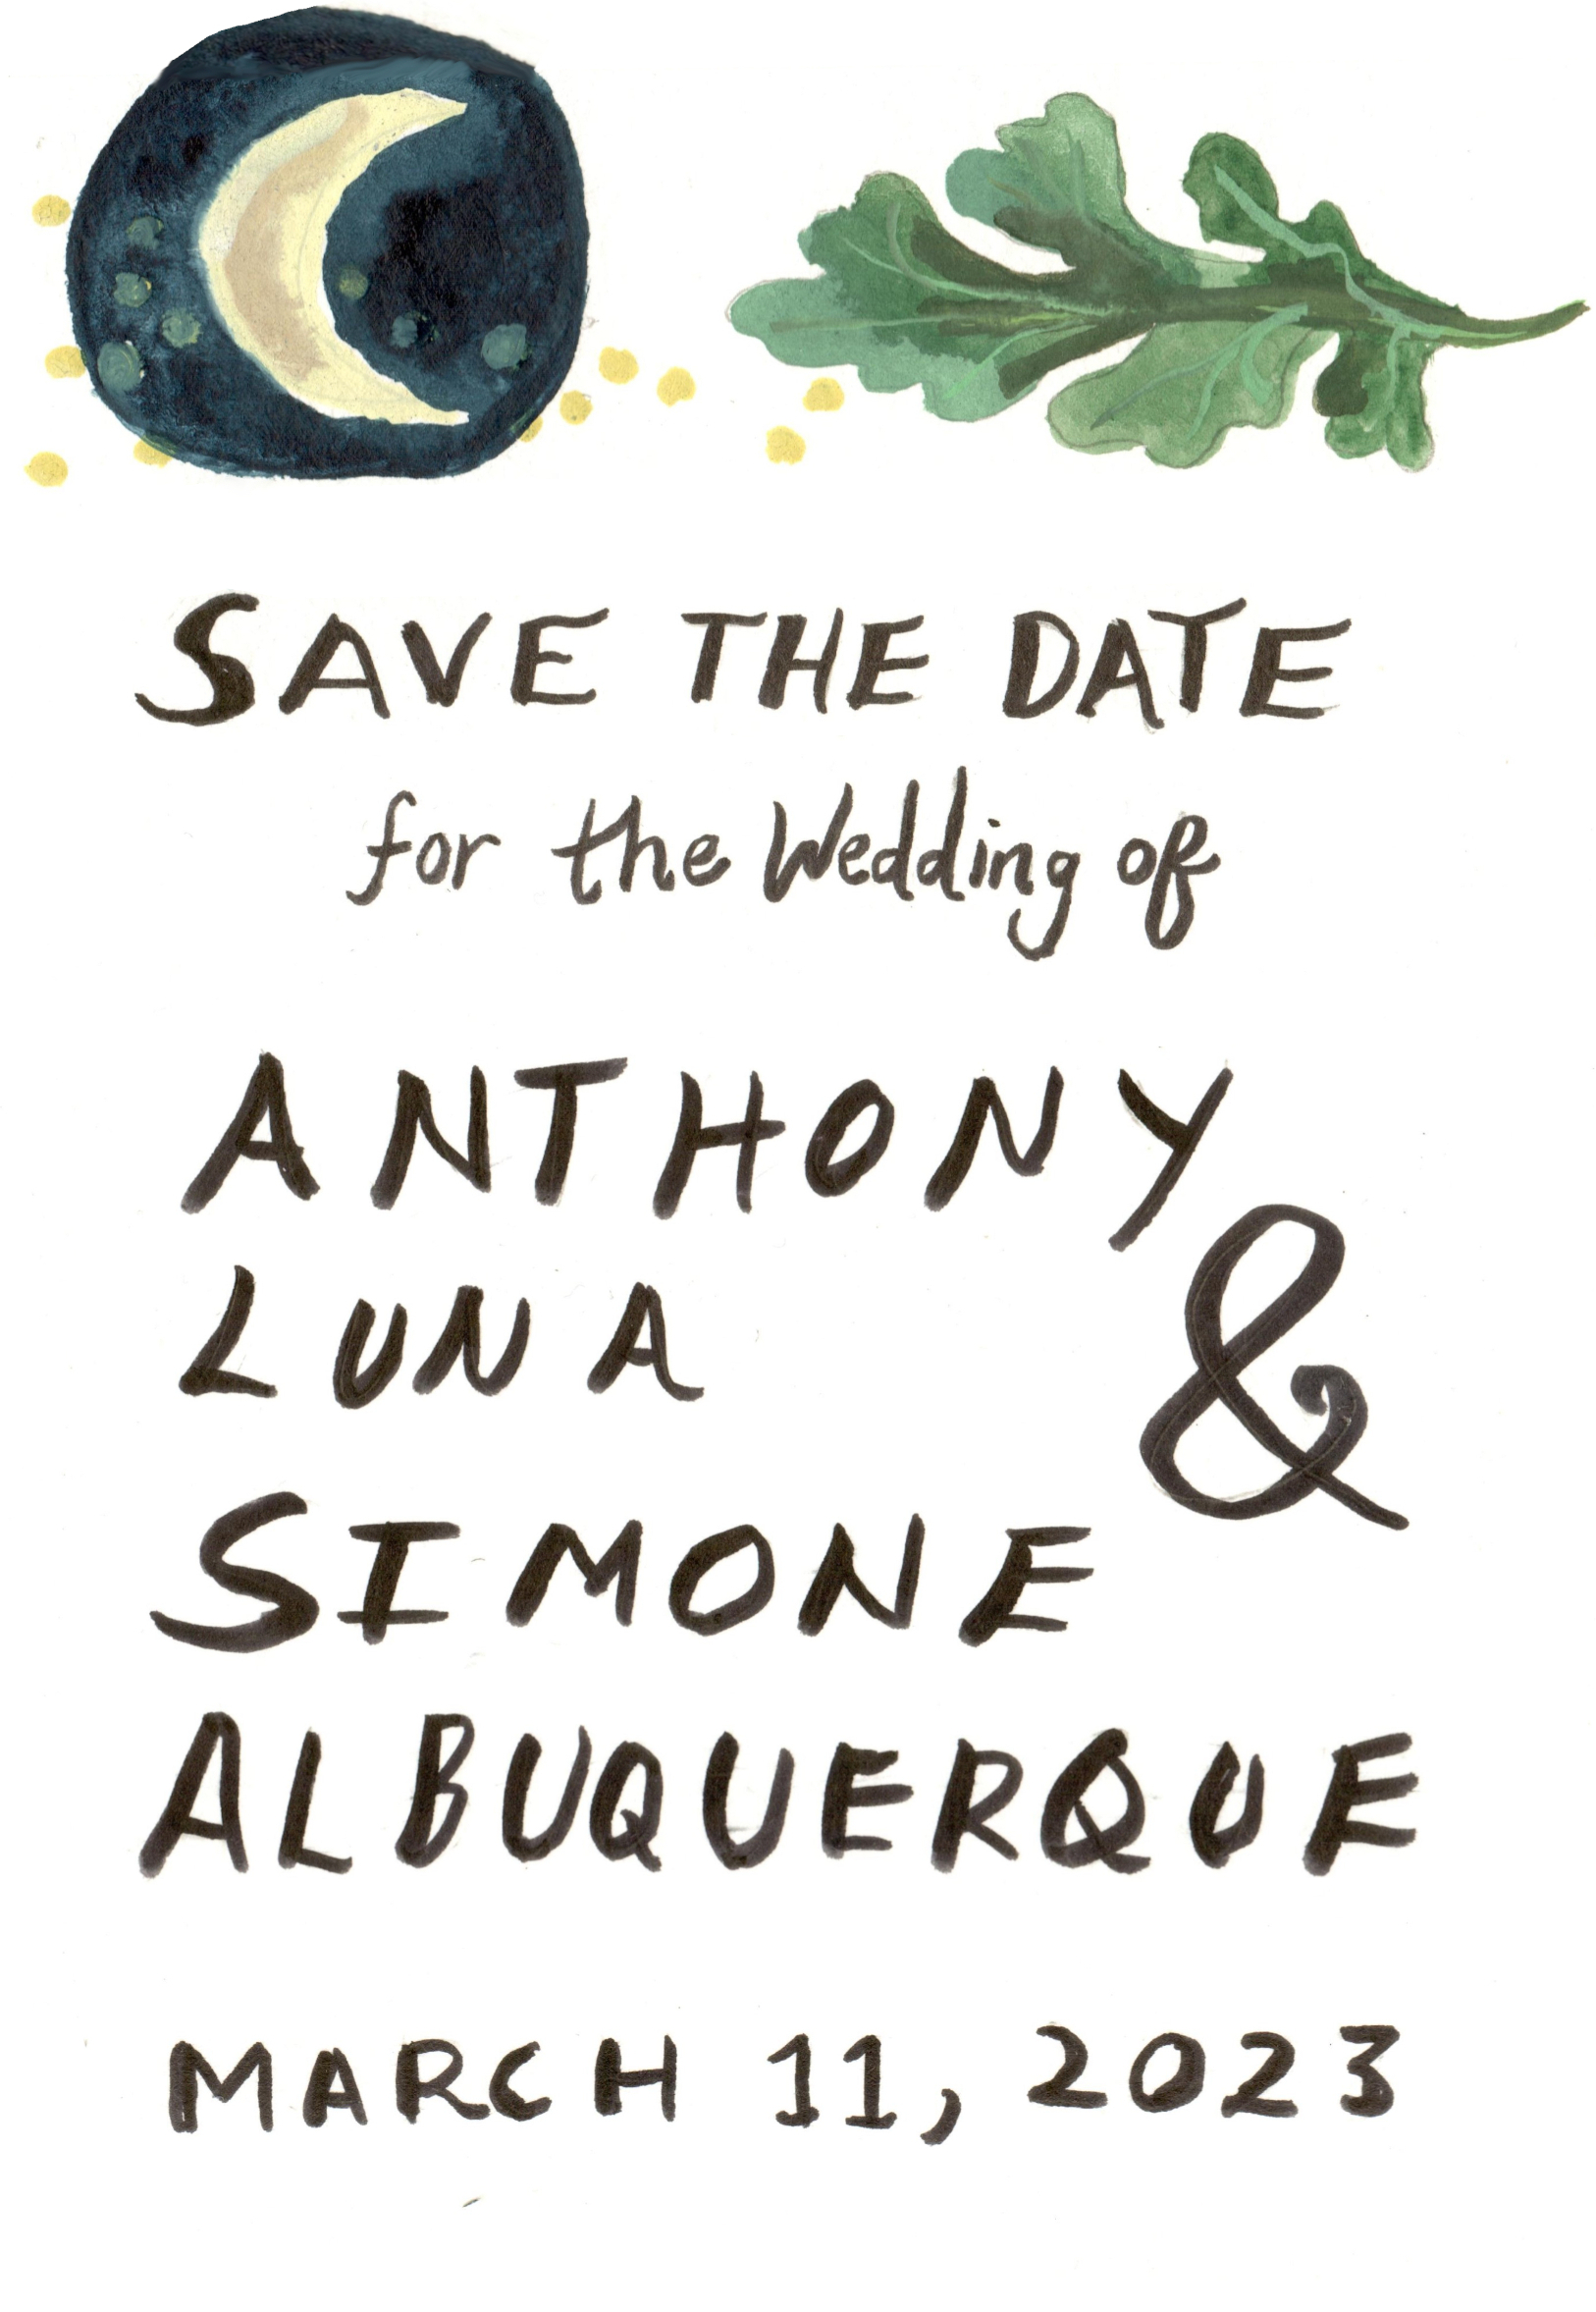 SAVE THE DATE
for the Wedding of
ANTHONY
LUNA
&
SIMONE
ALBUQUERQUE
MARCH 11, 2023